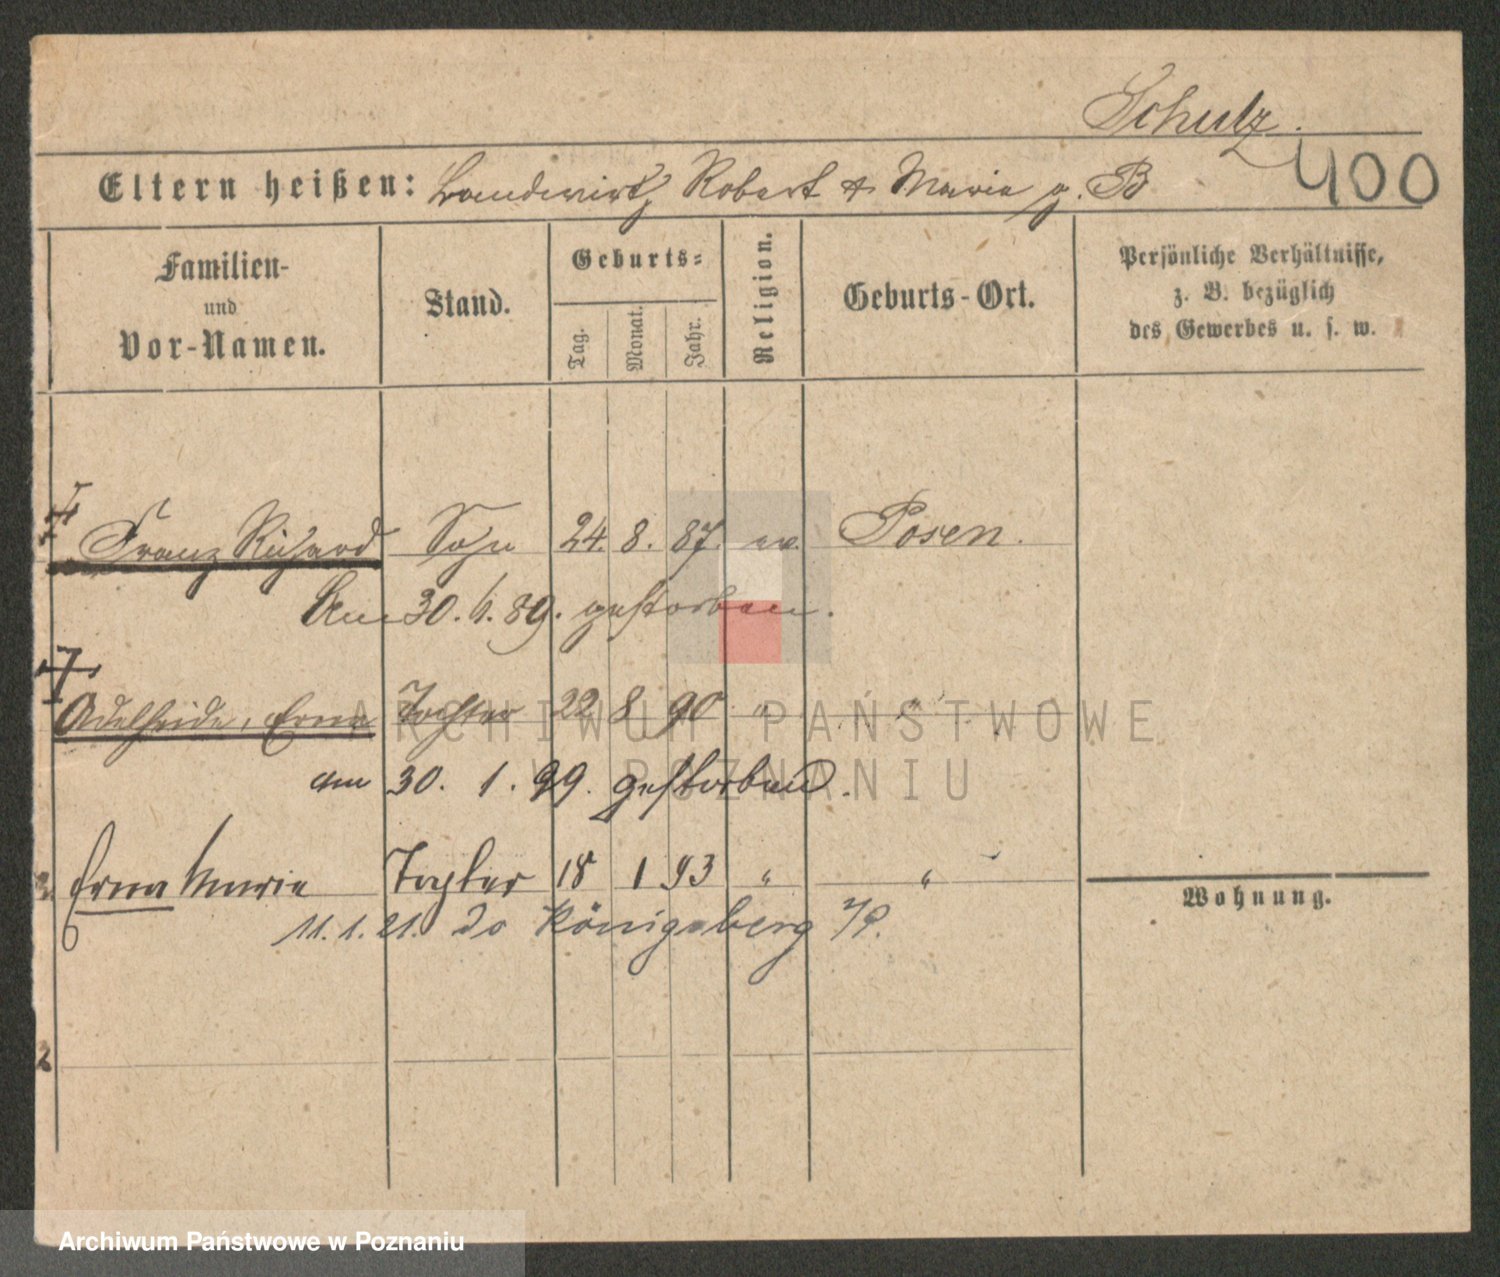 Schulz.
400
Eltern heißen: Landwirt Robert & Maria g. B
Familien-
und
Vor-Namen.
Stand.
Geburts-
Tag.
Monat.
Jahr.
Religion.
Geburts-Ort.
Persönliche Verhältnisse,
z. B. bezüglich
des Gewerbes u. s. w.
Franz Richard Sohn 24. 8. 87. ev. Posen.
Am 30. 1. 89. gestorben.
Adelheide, Erna Tochter 22 8 90 " "
am 30. 1. 99. gestorben.
3. Erna Maria Tochter 18 1 93 " "
11.1.21. do Königsberg /P.
Wohnung.
ARCHIWUM PAŃSTWOWE
W POZNANIU
Archiwum Państwowe w Poznaniu